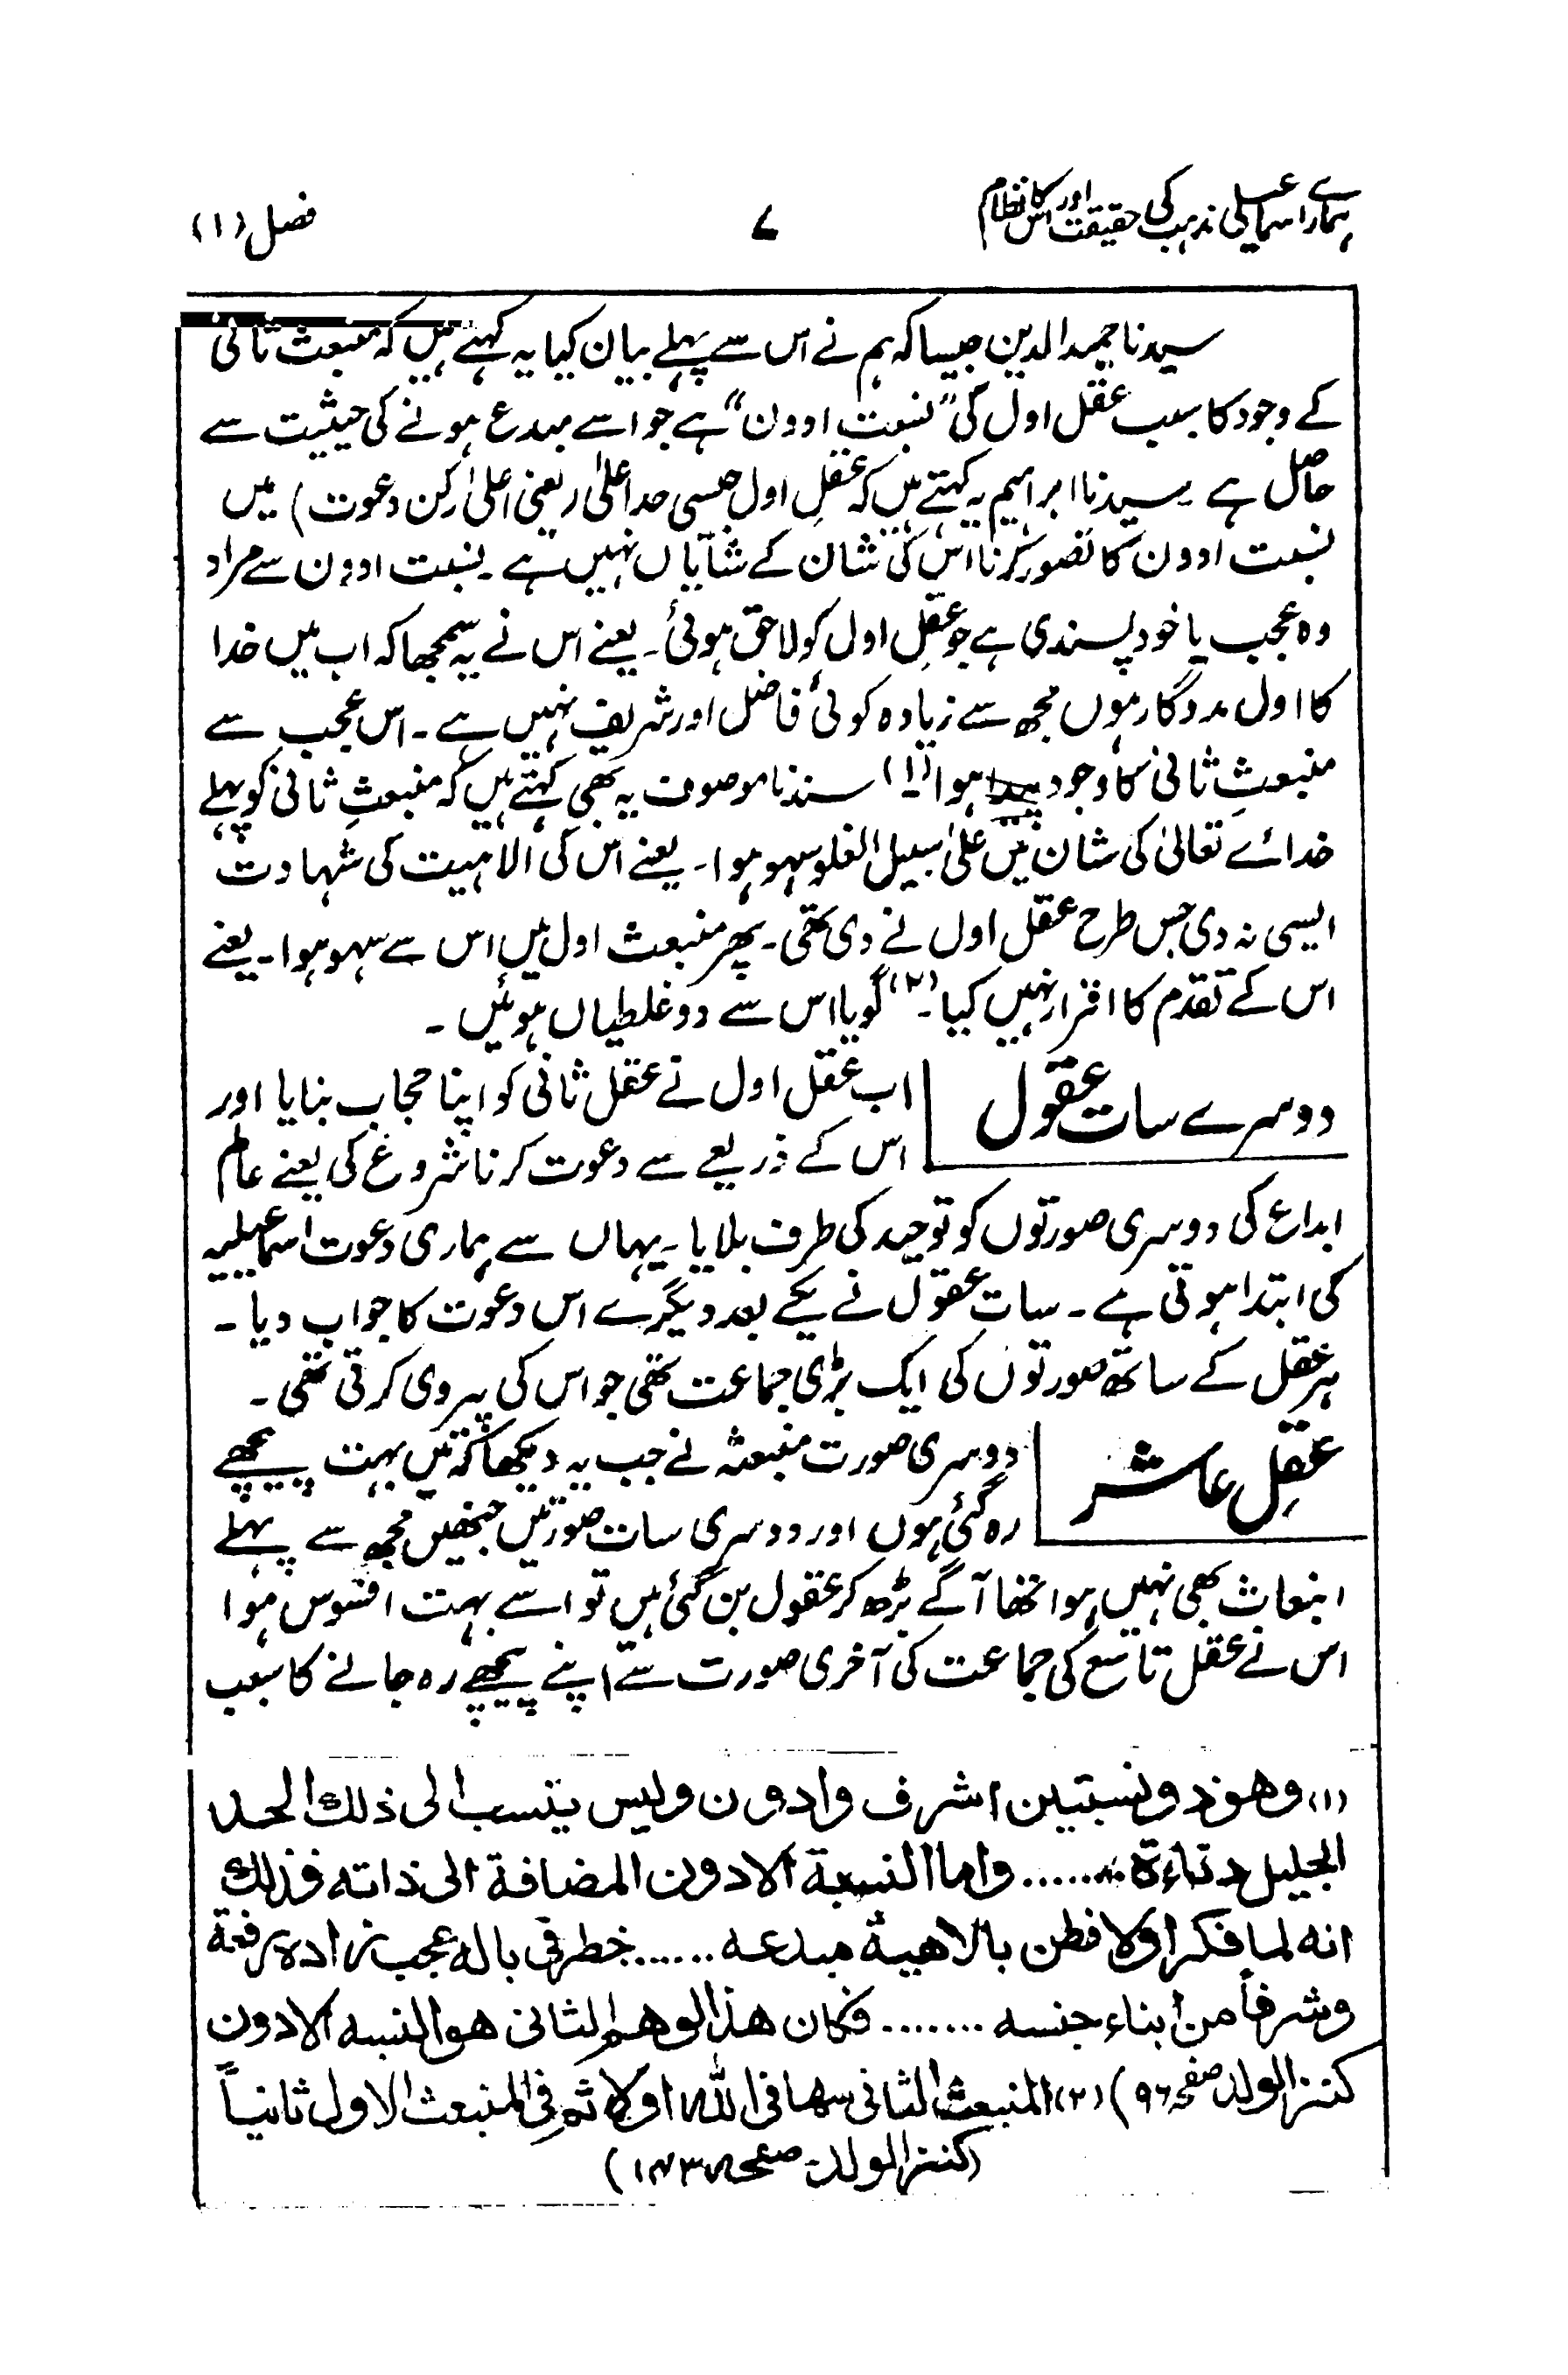 ہمارے اسماعیلی مذہب کی حقیقت اور اس کا نظام ۷ فصل (۱)
سیدنا حمید الدین جیسا کہ ہم نے اس سے پہلے بیان کیا یہ کہتے ہیں کہ منبعث ثانی
کے وجود کا سبب عقل اول کی ”نسبت ادون“ ہے جو اسے مبدع ہونے کی حیثیت سے
حاصل ہے۔ سیدنا ابراہیم یہ کہتے ہیں کہ عقلِ اول جیسی حد اعلیٰ (یعنی اعلیٰ رکن دعوت) میں
نسبت ادون کا تصور کرنا اس کی شان کے شایاں نہیں ہے۔ نسبت ادون سے مراد
وہ عجب یا خود پسندی ہے جو عقلِ اول کو لاحق ہوئی۔ یعنے اس نے یہ سمجھا کہ اب میں خدا
کا اول مددگار ہوں مجھ سے زیادہ کوئی فاضل اور شریف نہیں ہے۔ اس عجب سے
منبعثِ ثانی کا وجود پیدا ہوا (۱) سیدنا موصوف یہ بھی کہتے ہیں کہ منبعثِ ثانی کو پہلے
خدائے تعالیٰ کی شان میں علیٰ سبیل الغلو سہو ہوا۔ یعنے اس کی الاہیت کی شہادت
ایسی نہ دی جس طرح عقل اول نے دی تھی۔ پھر منبعث اول میں اس سے سہو ہوا۔ یعنے
اس کے تقدم کا اقرار نہیں کیا۔ (۲) گویا اس سے دو غلطیاں ہوئیں۔
دوسرے سات عقول
اب عقل اول نے عقل ثانی کو اپنا حجاب بنایا اور
اس کے ذریعے سے دعوت کرنا شروع کی یعنے عالم
ابداع کی دوسری صورتوں کو توحید کی طرف بلایا۔ یہاں سے ہماری دعوت اسماعیلیہ
کی ابتدا ہوتی ہے۔ سات عقول نے یکے بعد دیگرے اس دعوت کا جواب دیا۔
ہر عقل کے ساتھ صورتوں کی ایک بڑی جماعت تھی جو اس کی پیروی کرتی تھی۔
عقلِ عاشر
دوسری صورت منبعثہ نے جب یہ دیکھا کہ میں بہت پیچھے
رہ گئی ہوں اور دوسری سات صورتیں جنھیں مجھ سے پہلے
انبعاث بھی نہیں ہوا تھا آگے بڑھ کر عقول بن گئی ہیں تو اسے بہت افسوس ہوا
اس نے عقل تاسع کی جماعت کی آخری صورت سے اپنے پیچھے رہ جانے کا سبب
(۱) وهو ذو نسبتين اشرف وادون وليس ينتسب الى ذلك الحد
الجليل دناءة ........ واما النسبة الادون المضافة الى ذاته فذلك
انه لما فكر اولا فطن بالاهية مبدعه ...... خطر فى باله عجب زاده رفعة
وشرفاً من ابناء جنسه ....... فكان هذا الوهم الثانى هو النسبه الادون
كنز الولد صفحہ ۹۶) (۲) المنبعث الثانى سها فى الله اولا ثم فى المنبعث الاول ثانياً
(كنز الولد۔ صفحہ